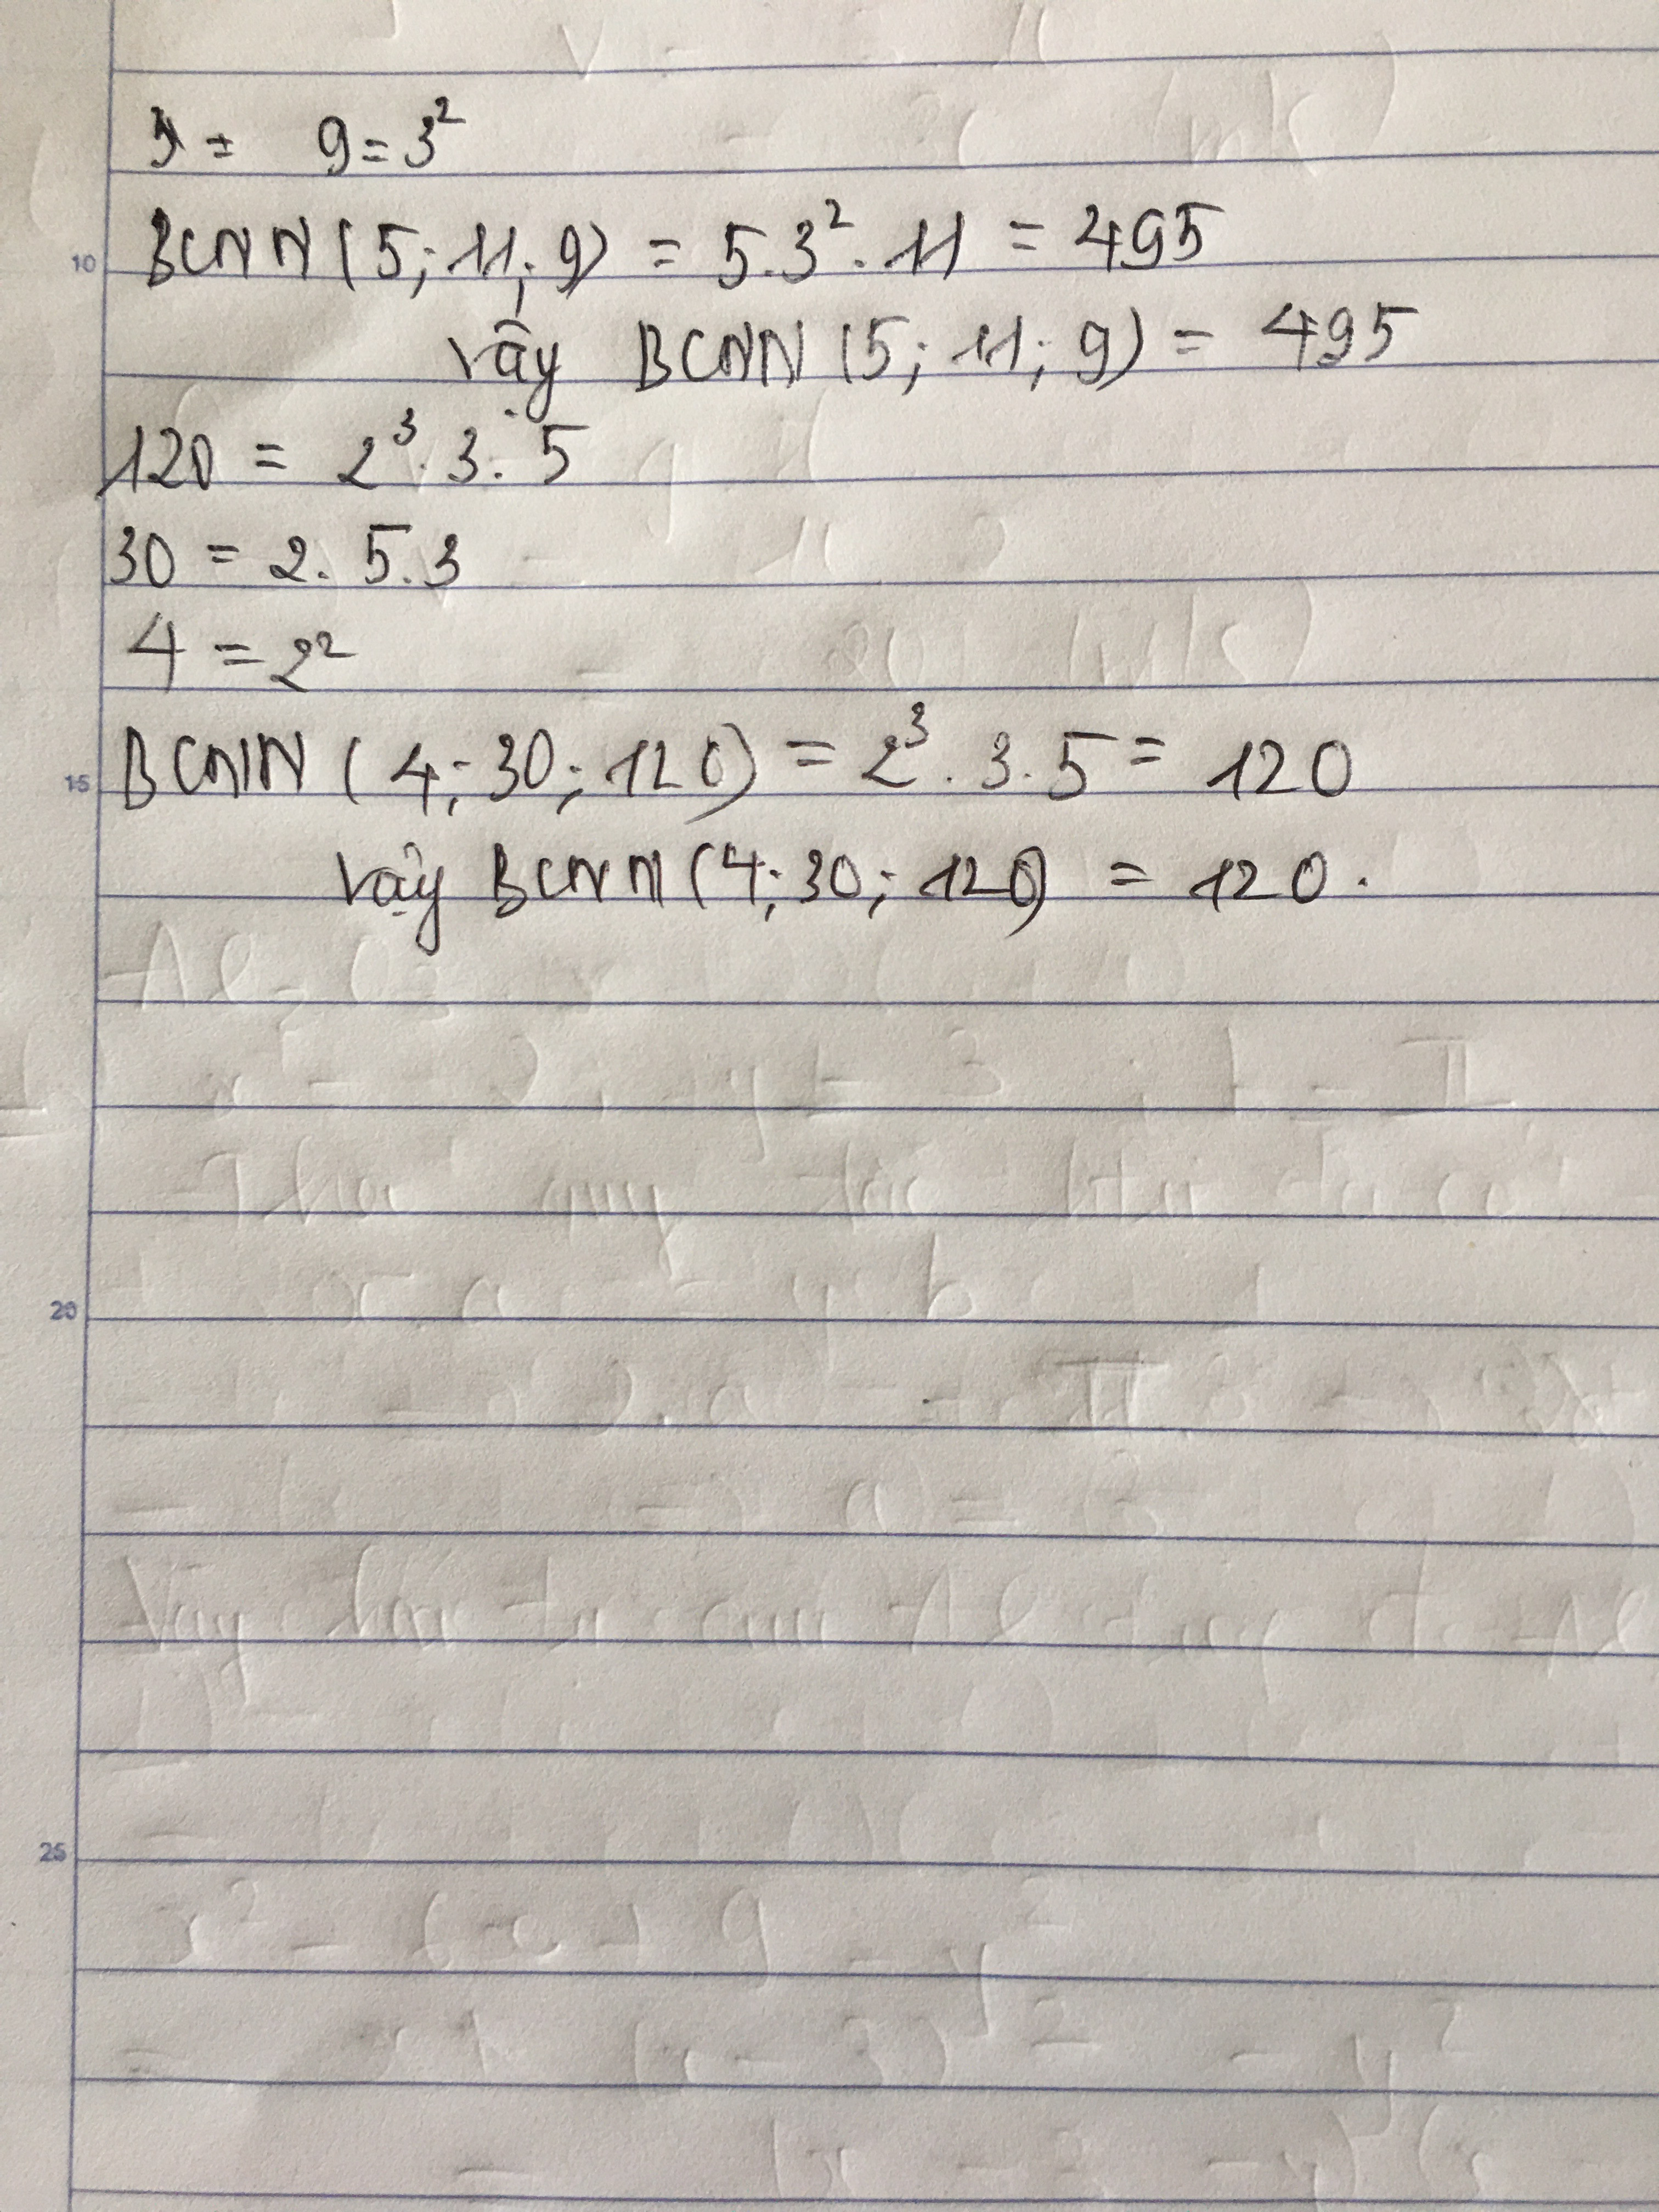 9 = 3²
10 BCNN (5; 11; 9) = 5.3².11 = 495
vậy BCNN (5; 11; 9) = 495
120 = 2³. 3. 5
30 = 2. 5.3
4 = 2²
15 BCNN (4; 30; 120) = 2³. 3. 5 = 120
Vậy BCNN (4; 30; 120) = 120.
20
25